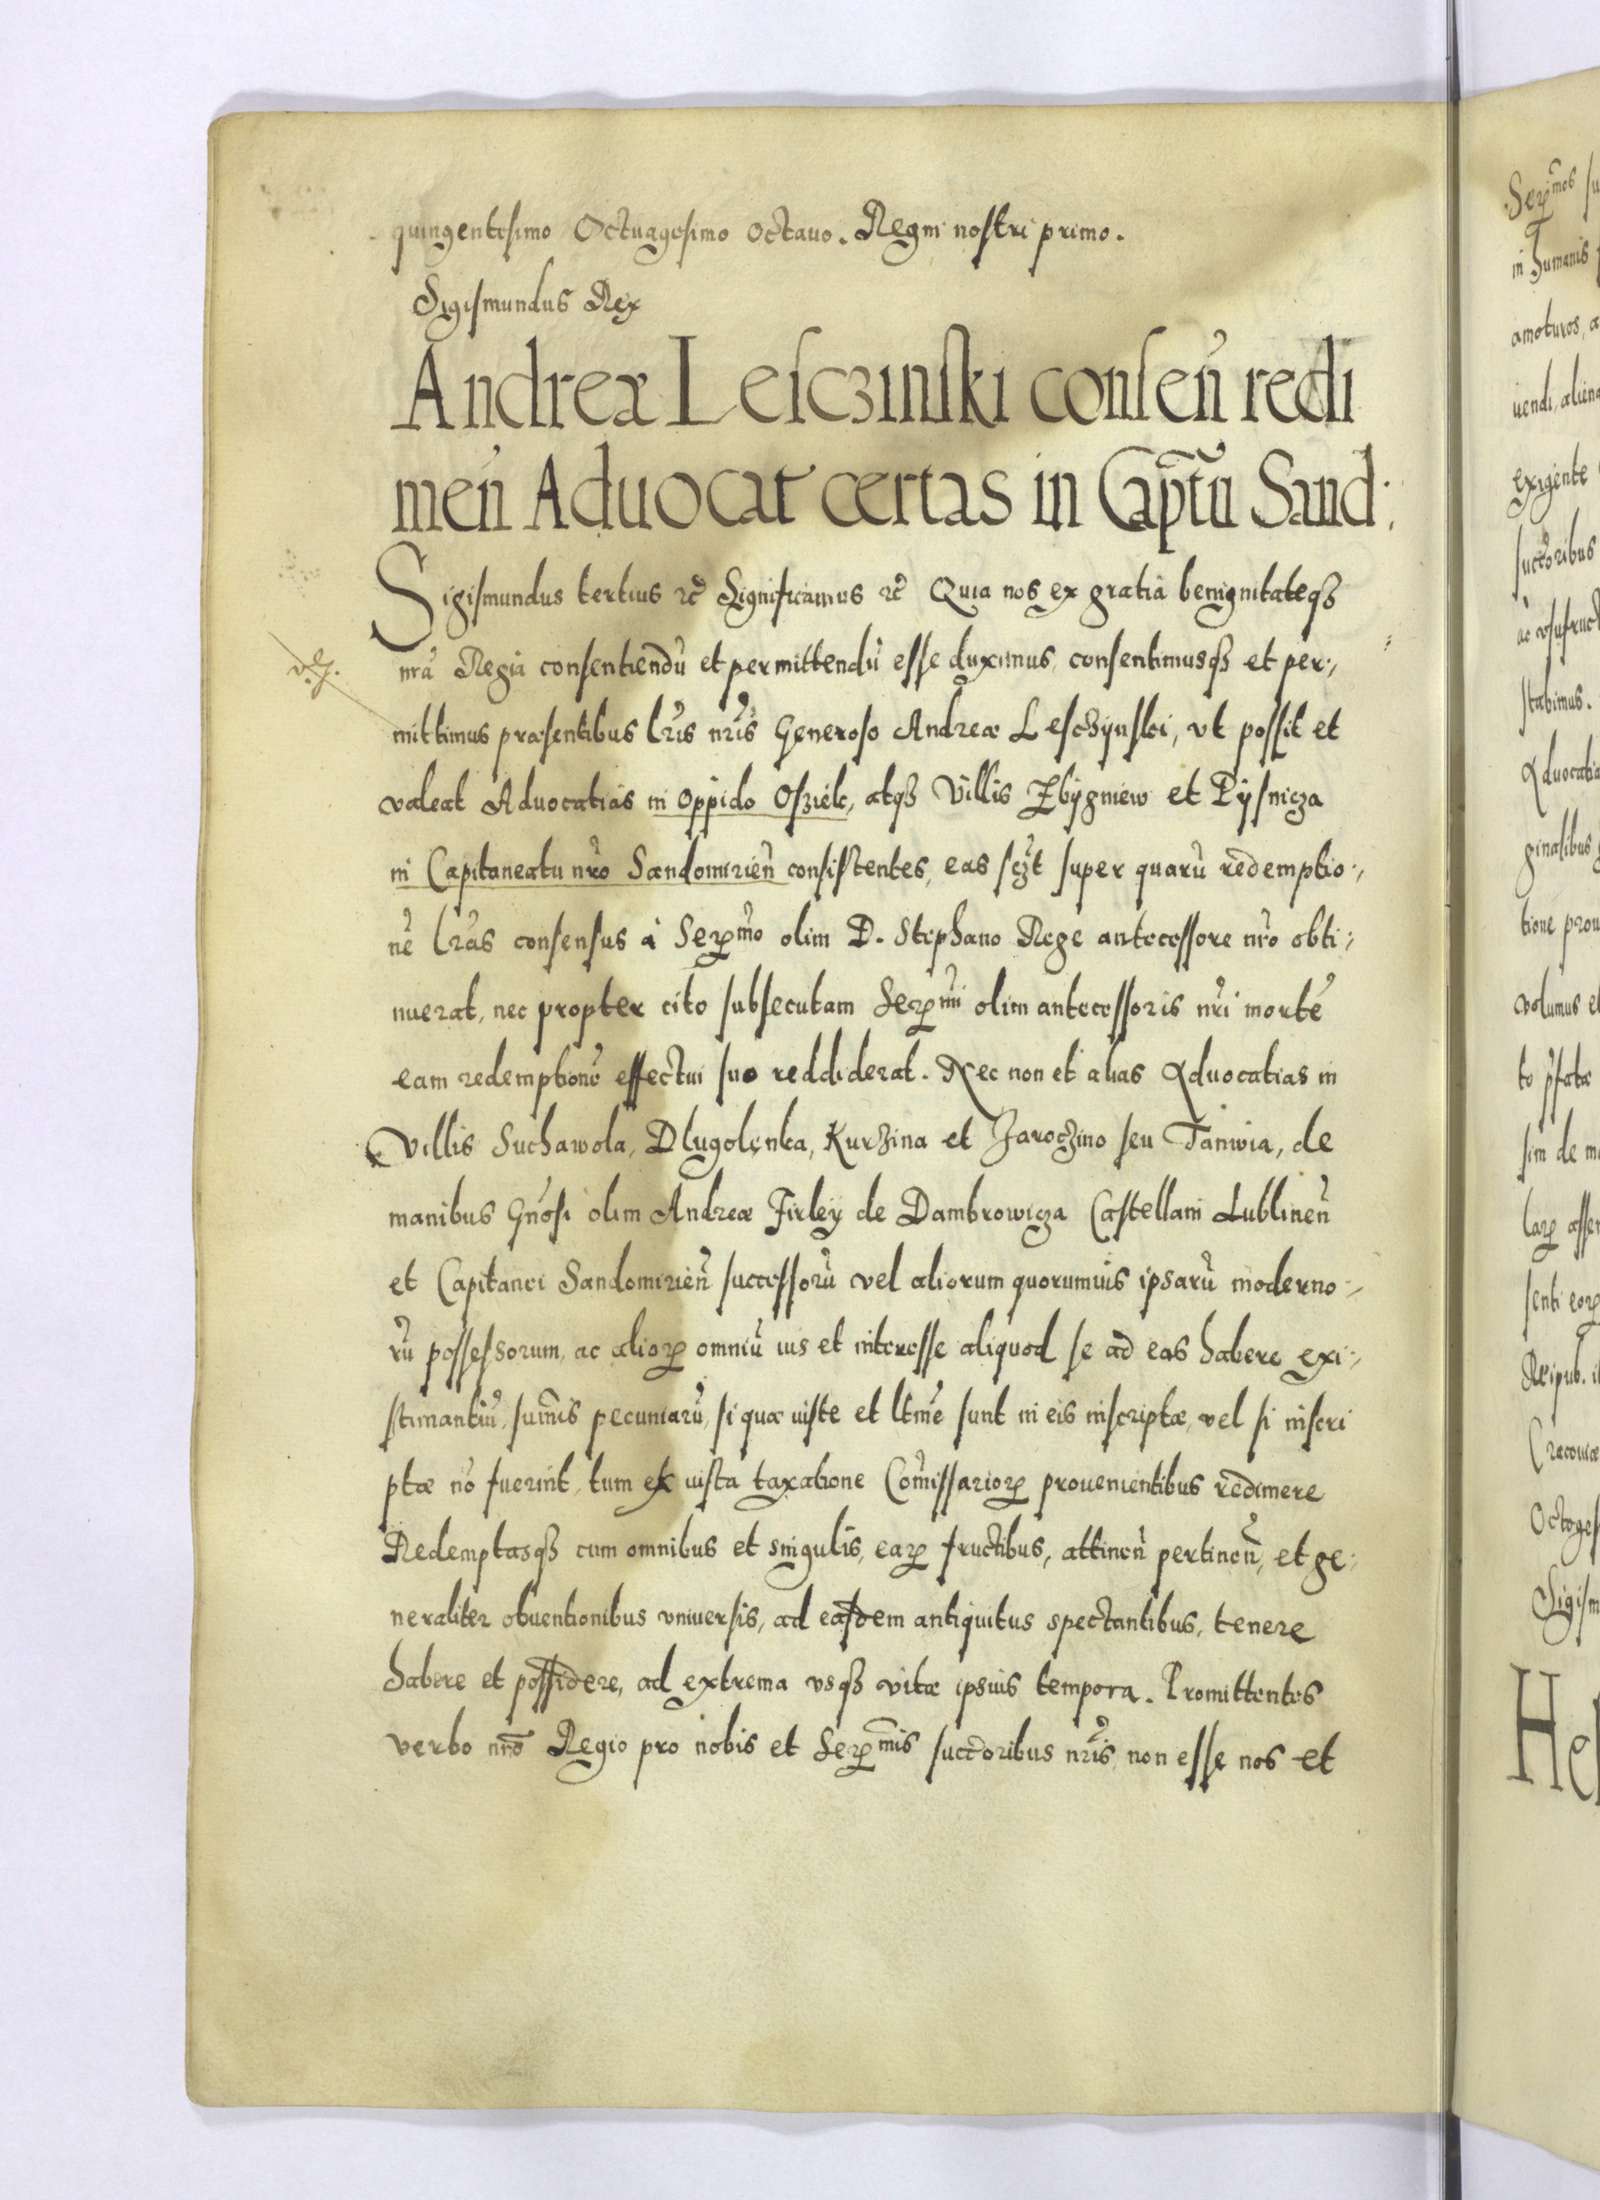 quingentesimo Octuagesimo octauo. Regni nostri primo.
Sigismundus Rex
Andreæ Lesczinski consen̄ redi
men̄ Aduocat certas in Capt̄u Sand:
Sigismundus tertius etc̄ Significamus etc̄ Quia nos ex gratia benignitateq₃
nr̄a Regia consentiendū et permittendū esse duximus, consentimusq₃ et per:,
mittimus præsentibus lr̄is nr̄is Generoso Andreæ Leschynski, vt possit et
valeat Aduocatias in oppido Osziek, atq₃ Villis Zbygniew et Pysnicza
in Capitaneatu nr̄o Sandomirien̄ consistentes, eas sc₃t super quarū redemptio:,
nē lr̄as consensus à Serꝫᵐᵒ olim D. Stephano Rege antecessore nr̄o obti:,
nuerat, nec propter cito subsecutam Serꝫᵐⁱ olim antecessoris nr̄i mortē
eam redemptionē effectui suo reddiderat. Nec non et alias Aduocatias in
Villis Suchawola, Dlugolęnka, Kurzina et Jaroczino seu Tanwia, de
manibus Gn̄osi olim Andreæ Firley de Dambrowicza Castellani Lublinen̄
et Capitanei Sandomirien̄ successorū vel aliorum quorumuis ipsarū moderno:,
rū possessorum, ac aliorꝫ omniū ius et interesse aliquod se ad eas habere exi:,
stimantiū, sum̄is pecuniarū, si quæ iuste et lt̄me sunt in eis inscriptæ, vel si inscri
ptæ nō fuerint, tum ex iusta taxatione Com̄issariorꝫ prouenientibus redimere
Redemptasq₃ cum omnibus et singulis, earꝫ fructibus, attinen̄ pertinen̄, et ge:,
neraliter obuentionibus vniuersis, ad easdem antiquitus spectantibus, tenere
habere et possidere, ad extrema vsq₃ vitæ ipsius tempora. Promittentes
verbo nr̄o Regio pro nobis et Serꝫᵐⁱˢ succ̄oribus nr̄is, non esse nos et
Serꝫᵐᵒˢ su
in humanis
amoturos, a
uendi, aliena
exigente
succ̄oribus
ac vsufruct
stabimus.
Aduocatia
ginalibus
tione prou
volumus et
to pr̄fatæ
sim de m
larꝫ asse
senti eorꝫ
Reipub. i
Cracouiæ
Octoges
Sigism
Hel